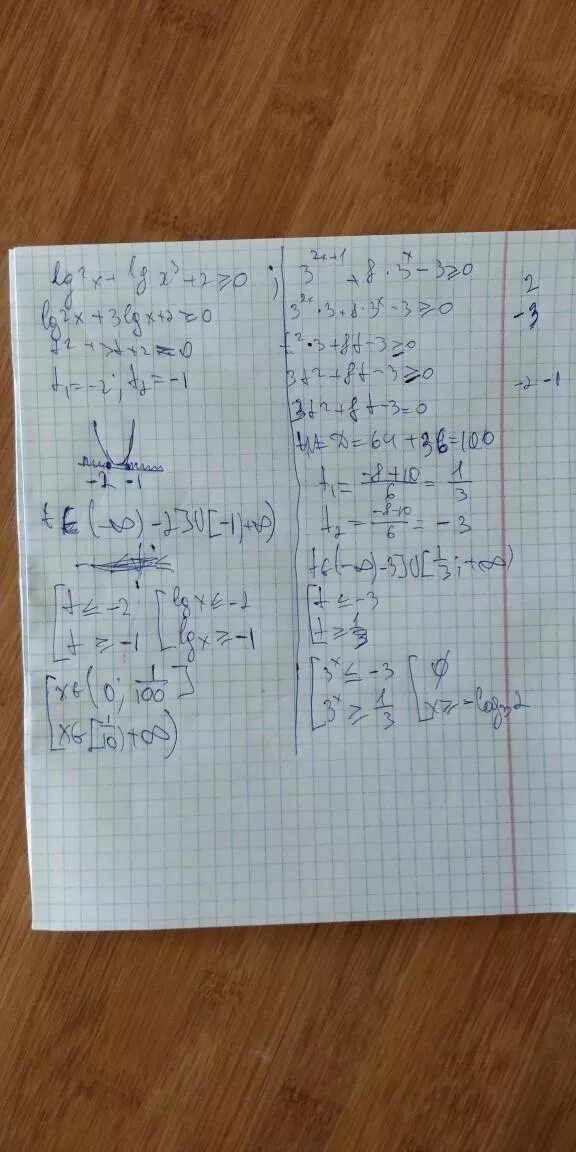 lg²x + lg x³ + 2 ≥ 0 ;
lg²x + 3lgx + 2 ≥ 0
t² + 3t + 2 = 0
t₁ = -2 ; t₂ = -1
-2 -1
t ∈ (-∞) -2] ∪ [-1) +∞)
[ t ≤ -2 [ lgx ≤ -2
t ≥ -1 lgx ≥ -1
[ x ∈ (0; 1/100]
x ∈ [1/10) +∞)
3^(2x+1) + 8·3^x - 3 ≥ 0
3^(2x)·3 + 8·3^x - 3 ≥ 0
t²·3 + 8t - 3 ≥ 0
3t² + 8t - 3 ≥ 0
3t² + 8t - 3 = 0
D = 64 + 36 = 100
t₁ = (-8+10)/6 = 1/3
t₂ = (-8-10)/6 = -3
t ∈ (-∞) -3] ∪ [1/3; +∞)
[ t ≤ -3
t ≥ 1/3
[ 3^x ≤ -3 [ ∅
3^x ≥ 1/3 x ≥ -log₃
2
-3
-2 -1